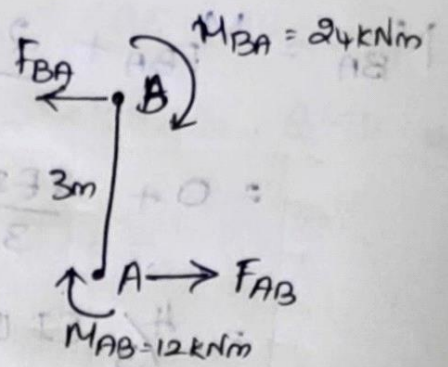 M_BA = 24 kNm
F_BA
B
3m
A → F_AB
M_AB = 12 kNm